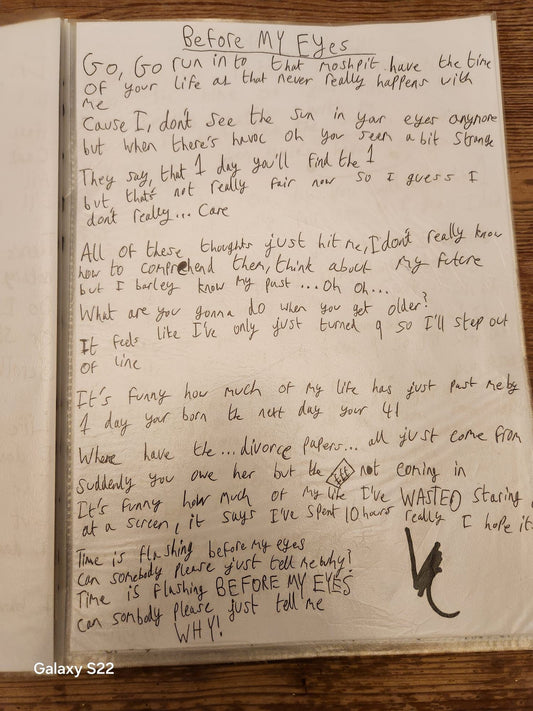 Before My Eyes
Go, Go run in to that moshpit have the time
Of your life as that never really happens with
me
Cause I, don't see the sun in your eyes anymore
but when there's havoc oh you seem a bit strange
They say, that 1 day you'll find the 1
but, that's not really fair now so I guess I
don't really... Care
All of these thoughts just hit me, I don't really know
how to comprehend them, think about my future
but I barley know my past... Oh oh...
What are you gonna do when you get older?
It feels like I've only just turned 9 so I'll step out
of line
It's funny how much of my life has just past me by
1 day your born the next day your 41
Where have the... divorce papers... all just come from
Suddenly you owe her but the £££ not coming in
It's funny how much of my life I've WASTED staring
at a screen, it says I've spent 10 hours really I hope it's
Time is flashing before my eyes
Can somebody please just tell me why?
Time is flashing BEFORE MY EYES
can sombody please just tell me
WHY!
Galaxy S22